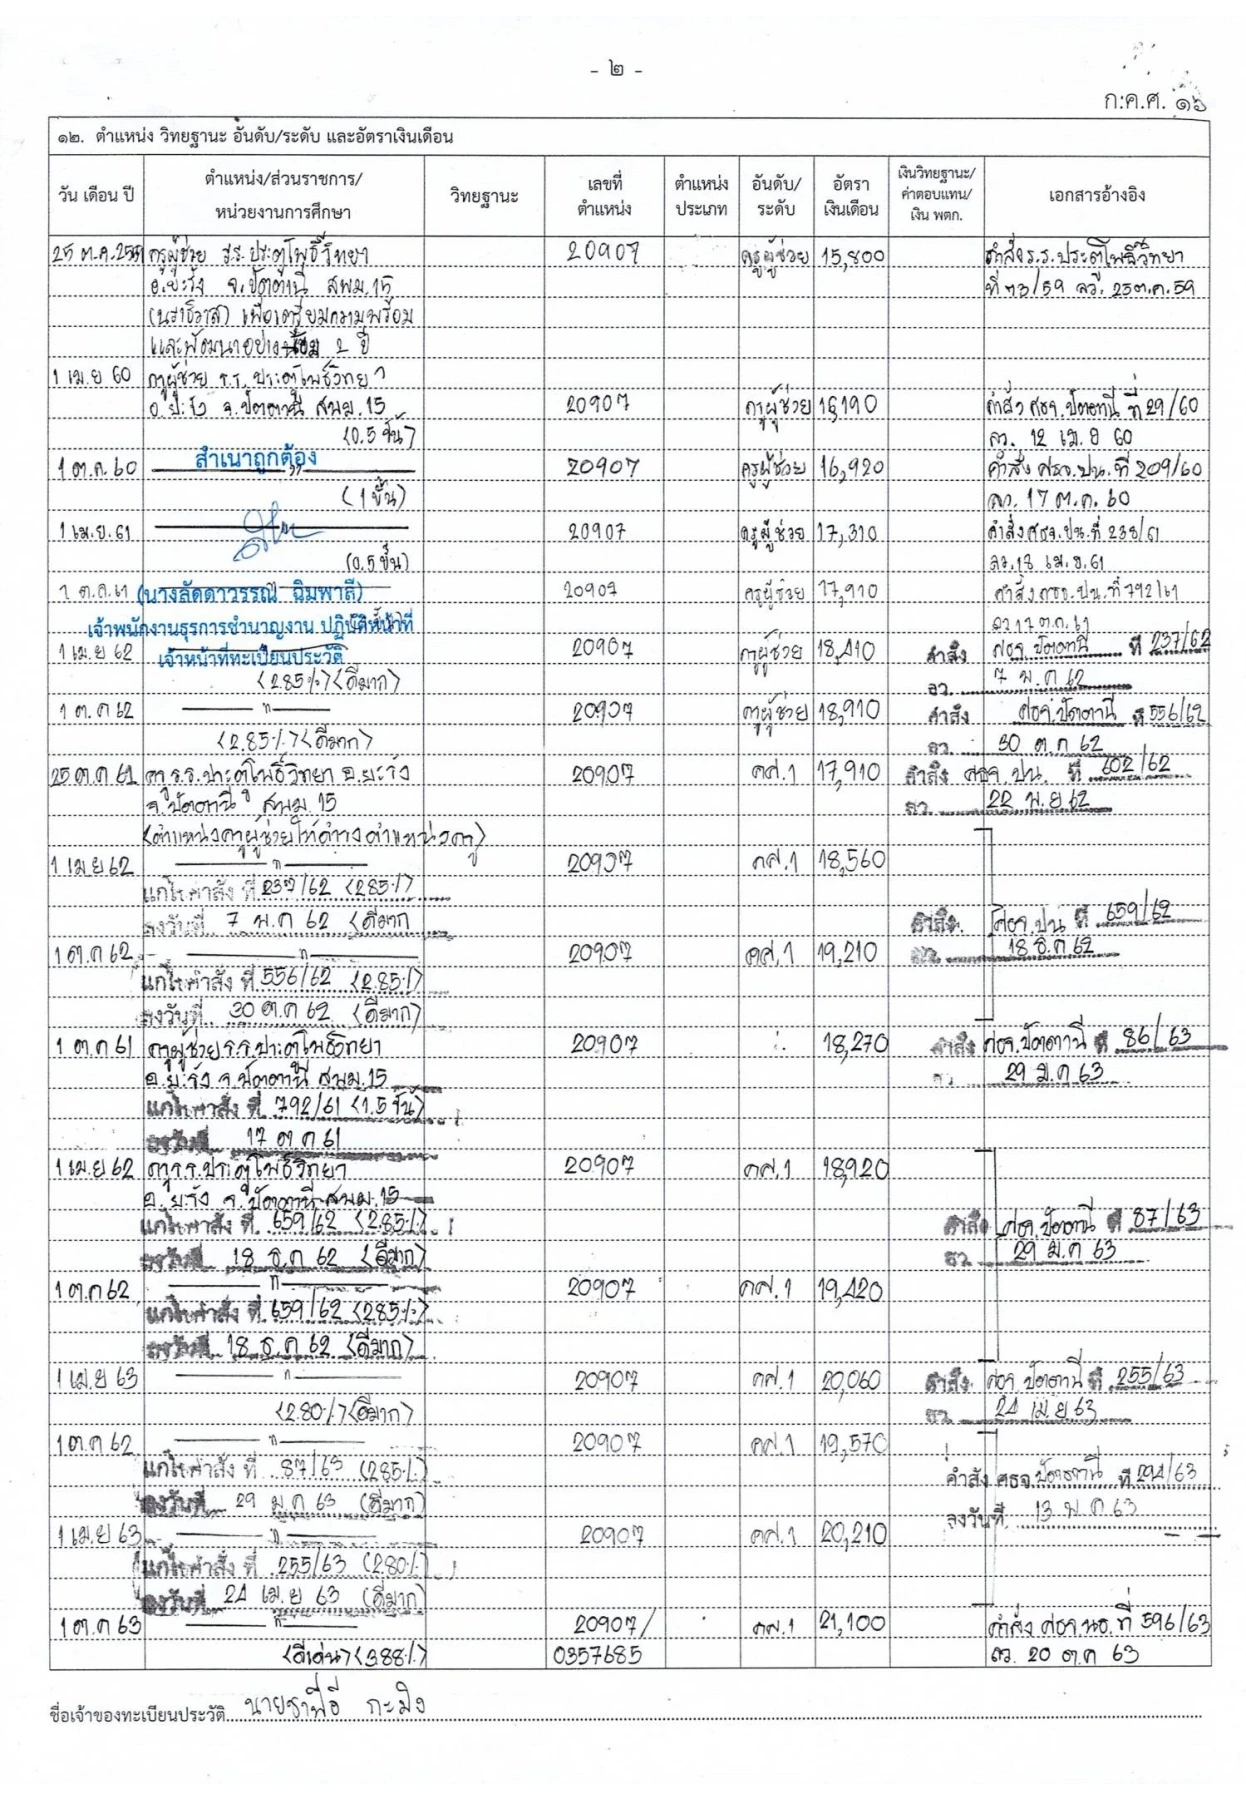 - ๒ -
ก.ค.ศ. ๑๖
๑๒. ตำแหน่ง วิทยฐานะ อันดับ/ระดับ และอัตราเงินเดือน
วัน เดือน ปี ตำแหน่ง/ส่วนราชการ/หน่วยงานการศึกษา วิทยฐานะ เลขที่ตำแหน่ง ตำแหน่งประเภท อันดับ/ระดับ อัตราเงินเดือน เงินวิทยฐานะ/ค่าตอบแทน/เงิน พตก. เอกสารอ้างอิง
25 ต.ค. 2559 ครูผู้ช่วย ร.ร. ประตูโพธิ์วิทยา 20907 ครูผู้ช่วย 15,800 คำสั่ง ร.ร. ประตูโพธิ์วิทยา
อ.ยะรัง จ.ปัตตานี สพม.15 ที่ 73/59 ลว. 25 ต.ค. 59
(นราธิวาส) เพื่อเตรียมความพร้อม
และพัฒนาอย่างเข้ม 2 ปี
1 เม.ย 60 ครูผู้ช่วย ร.ร. ประตูโพธิ์วิทยา
จ.ปัตตานี สพม.15 20907 ครูผู้ช่วย 16,190 คำสั่ง ศธจ.ปัตตานี ที่ 29/60
(0.5 ขั้น) ลว. 12 เม.ย 60
1 ต.ค. 60 สำเนาถูกต้อง 20907 ครูผู้ช่วย 16,920 คำสั่ง ศธจ.ปน. ที่ 209/60
(1 ขั้น) ลว. 17 ต.ค. 60
1 เม.ย. 61 20907 ครูผู้ช่วย 17,310 คำสั่ง ศธจ.ปน. ที่ 238/61
(0.5 ขั้น) ลว. 18 เม.ย. 61
1 ต.ค. 61 (นางลัดดาวรรณ์ ฉิมพาลี) 20907 ครูผู้ช่วย 17,910 คำสั่ง ศธจ.ปน. ที่ 792/61
เจ้าพนักงานธุรการชำนาญงาน ปฏิบัติหน้าที่ ลว 17 ต.ค. 61
1 เม.ย 62 เจ้าหน้าที่ทะเบียนประวัติ 20907 ครูผู้ช่วย 18,410 คำสั่ง ศธจ.ปัตตานี ที่ 237/62
(2.85%) (ดีมาก) ลว. 7 พ.ค 62
1 ต.ค 62 " 20907 ครูผู้ช่วย 18,910 คำสั่ง ศธจ.ปัตตานี ที่ 556/62
(2.85%) (ดีมาก) ลว. 30 ต.ค 62
25 ต.ค 61 ครู ร.ร.ประตูโพธิ์วิทยา อ.ยะรัง 20907 คศ.1 17,910 คำสั่ง ศธจ ปน. ที่ 602/62
จ.ปัตตานี สพม.15 ลว 22 พ.ย 62
(ตำแหน่งครูผู้ช่วยให้ดำรงตำแหน่งครู)
1 เม.ย 62 " 20907 คศ.1 18,560
แก้ไขคำสั่ง ที่ 237/62 (2.85%)
ลงวันที่ 7 พ.ค 62 (ดีมาก คำสั่ง ศธจ.ปน ที่ 659/62
1 ต.ค 62 " 20907 คศ.1 19,210 ลว. 18 ธ.ค 62
แก้ไขคำสั่ง ที่ 556/62 (2.85%)
ลงวันที่ 30 ต.ค 62 (ดีมาก)
1 ต.ค 61 ครูผู้ช่วย ร.ร.ประตูโพธิ์วิทยา 20907 18,270 คำสั่ง ศธจ.ปัตตานี ที่ 86/63
อ.ยะรัง จ.ปัตตานี สพม.15 ลว 29 ม.ค 63
แก้ไขคำสั่ง ที่ 792/61 (1.5 ขั้น)
ลงวันที่ 17 ต.ค 61
1 เม.ย 62 ครู ร.ร.ประตูโพธิ์วิทยา 20907 คศ.1 18,920
อ.ยะรัง จ.ปัตตานี สพม.15
แก้ไขคำสั่ง ที่ 659/62 (2.85%) คำสั่ง ศธจ.ปัตตานี ที่ 87/63
ลงวันที่ 18 ธ.ค 62 (ดีมาก) ลว 29 ม.ค 63
1 ต.ค 62 " 20907 คศ.1 19,420
แก้ไขคำสั่ง ที่ 659/62 (2.85%)
ลงวันที่ 18 ธ.ค 62 (ดีมาก)
1 เม.ย 63 " 20907 คศ.1 20,060 คำสั่ง ศธจ.ปัตตานี ที่ 255/63
(2.80%) (ดีมาก) ลว. 24 เม.ย 63
1 ต.ค 62 " 20907 คศ.1 19,570
แก้ไขคำสั่ง ที่ 87/63 (2.85%) คำสั่ง ศธจ.ปัตตานี ที่ 294/63
ลงวันที่ 29 ม.ค 63 (ดีมาก) ลงวันที่ 13 พ.ค 63
1 เม.ย 63 " 20907 คศ.1 20,210
แก้ไขคำสั่ง ที่ 255/63 (2.80%)
ลงวันที่ 24 เม.ย 63 (ดีมาก)
1 ต.ค 63 " 20907/ คศ.1 21,100 คำสั่ง ศธจ.นธ. ที่ 596/63
(ดีเด่น) (3.88%) 0357685 ลว. 20 ต.ค 63
ชื่อเจ้าของทะเบียนประวัติ